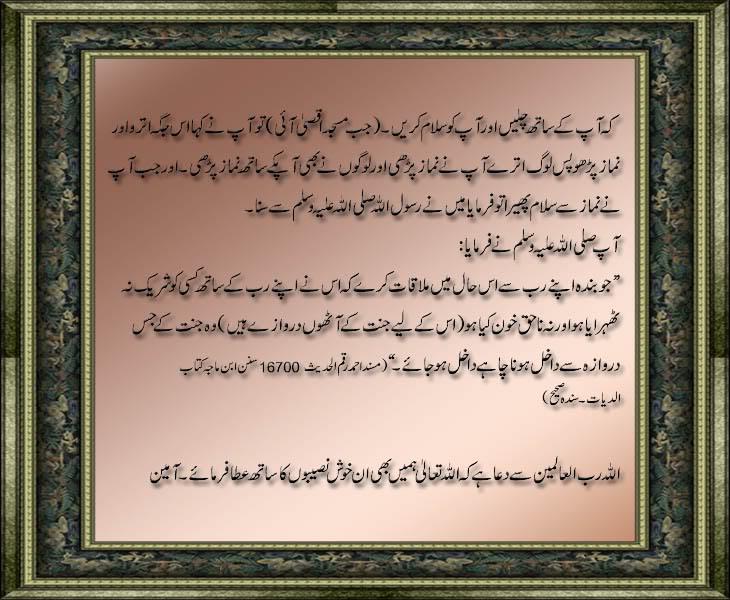 کہ آپ کے ساتھ چلیں اور آپ کو سلام کریں۔(جب مسجد اقصیٰ آئی) تو آپ نے کہا اس جگہ اترو اور
نماز پڑھو پس لوگ اترے آپ نے نماز پڑھی اور لوگوں نے بھی آپکے ساتھ نماز پڑھی۔اور جب آپ
نے نماز سے سلام پھیرا تو فرمایا میں نے رسول اللہ صلی اللہ علیہ وسلم سے سنا۔
آپ صلی اللہ علیہ وسلم نے فرمایا:
”جو بندہ اپنے رب سے اس حال میں ملاقات کرے کہ اس نے اپنے رب کے ساتھ کسی کو شریک نہ
ٹھہرایا ہو اور نہ ناحق خون کیا ہو (اس کے لیے جنت کے آٹھوں دروازے ہیں) وہ جنت کے جس
دروازہ سے داخل ہونا چاہے داخل ہو جائے۔“ (مسند احمد رقم الحدیث 16700 سنن ابن ماجہ کتاب
الدیات۔سندہ صحیح)
اللہ رب العالمین سے دعا ہے کہ اللہ تعالیٰ ہمیں بھی ان خوش نصیبوں کا ساتھ عطا فرمائے۔آمین